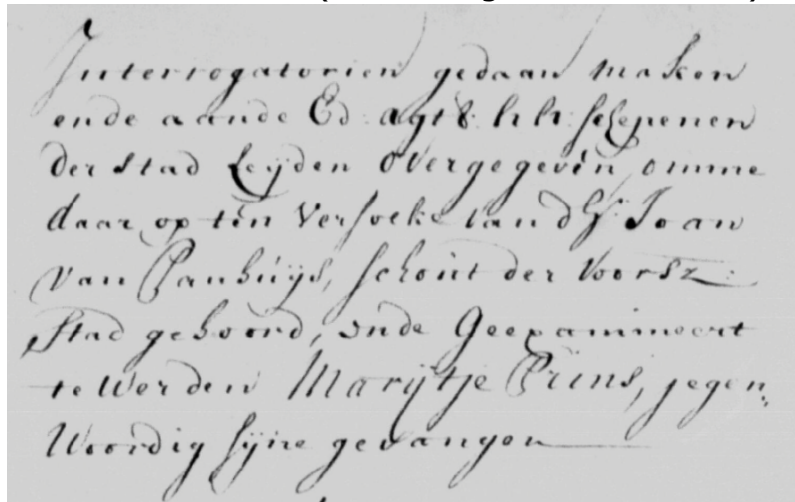 Interrogatorien gedaan maken
ende aande Ed: agtb: hh: schepenen
der stad Leijden overgegeven, omme
daar op ten versoeke vand Hr. Joan
van Panhuijs, schout der voorsz:
stad gehoord, ende Geexammeert
te werden Marijtje Prins, jegen„
woordig sijne gevangen